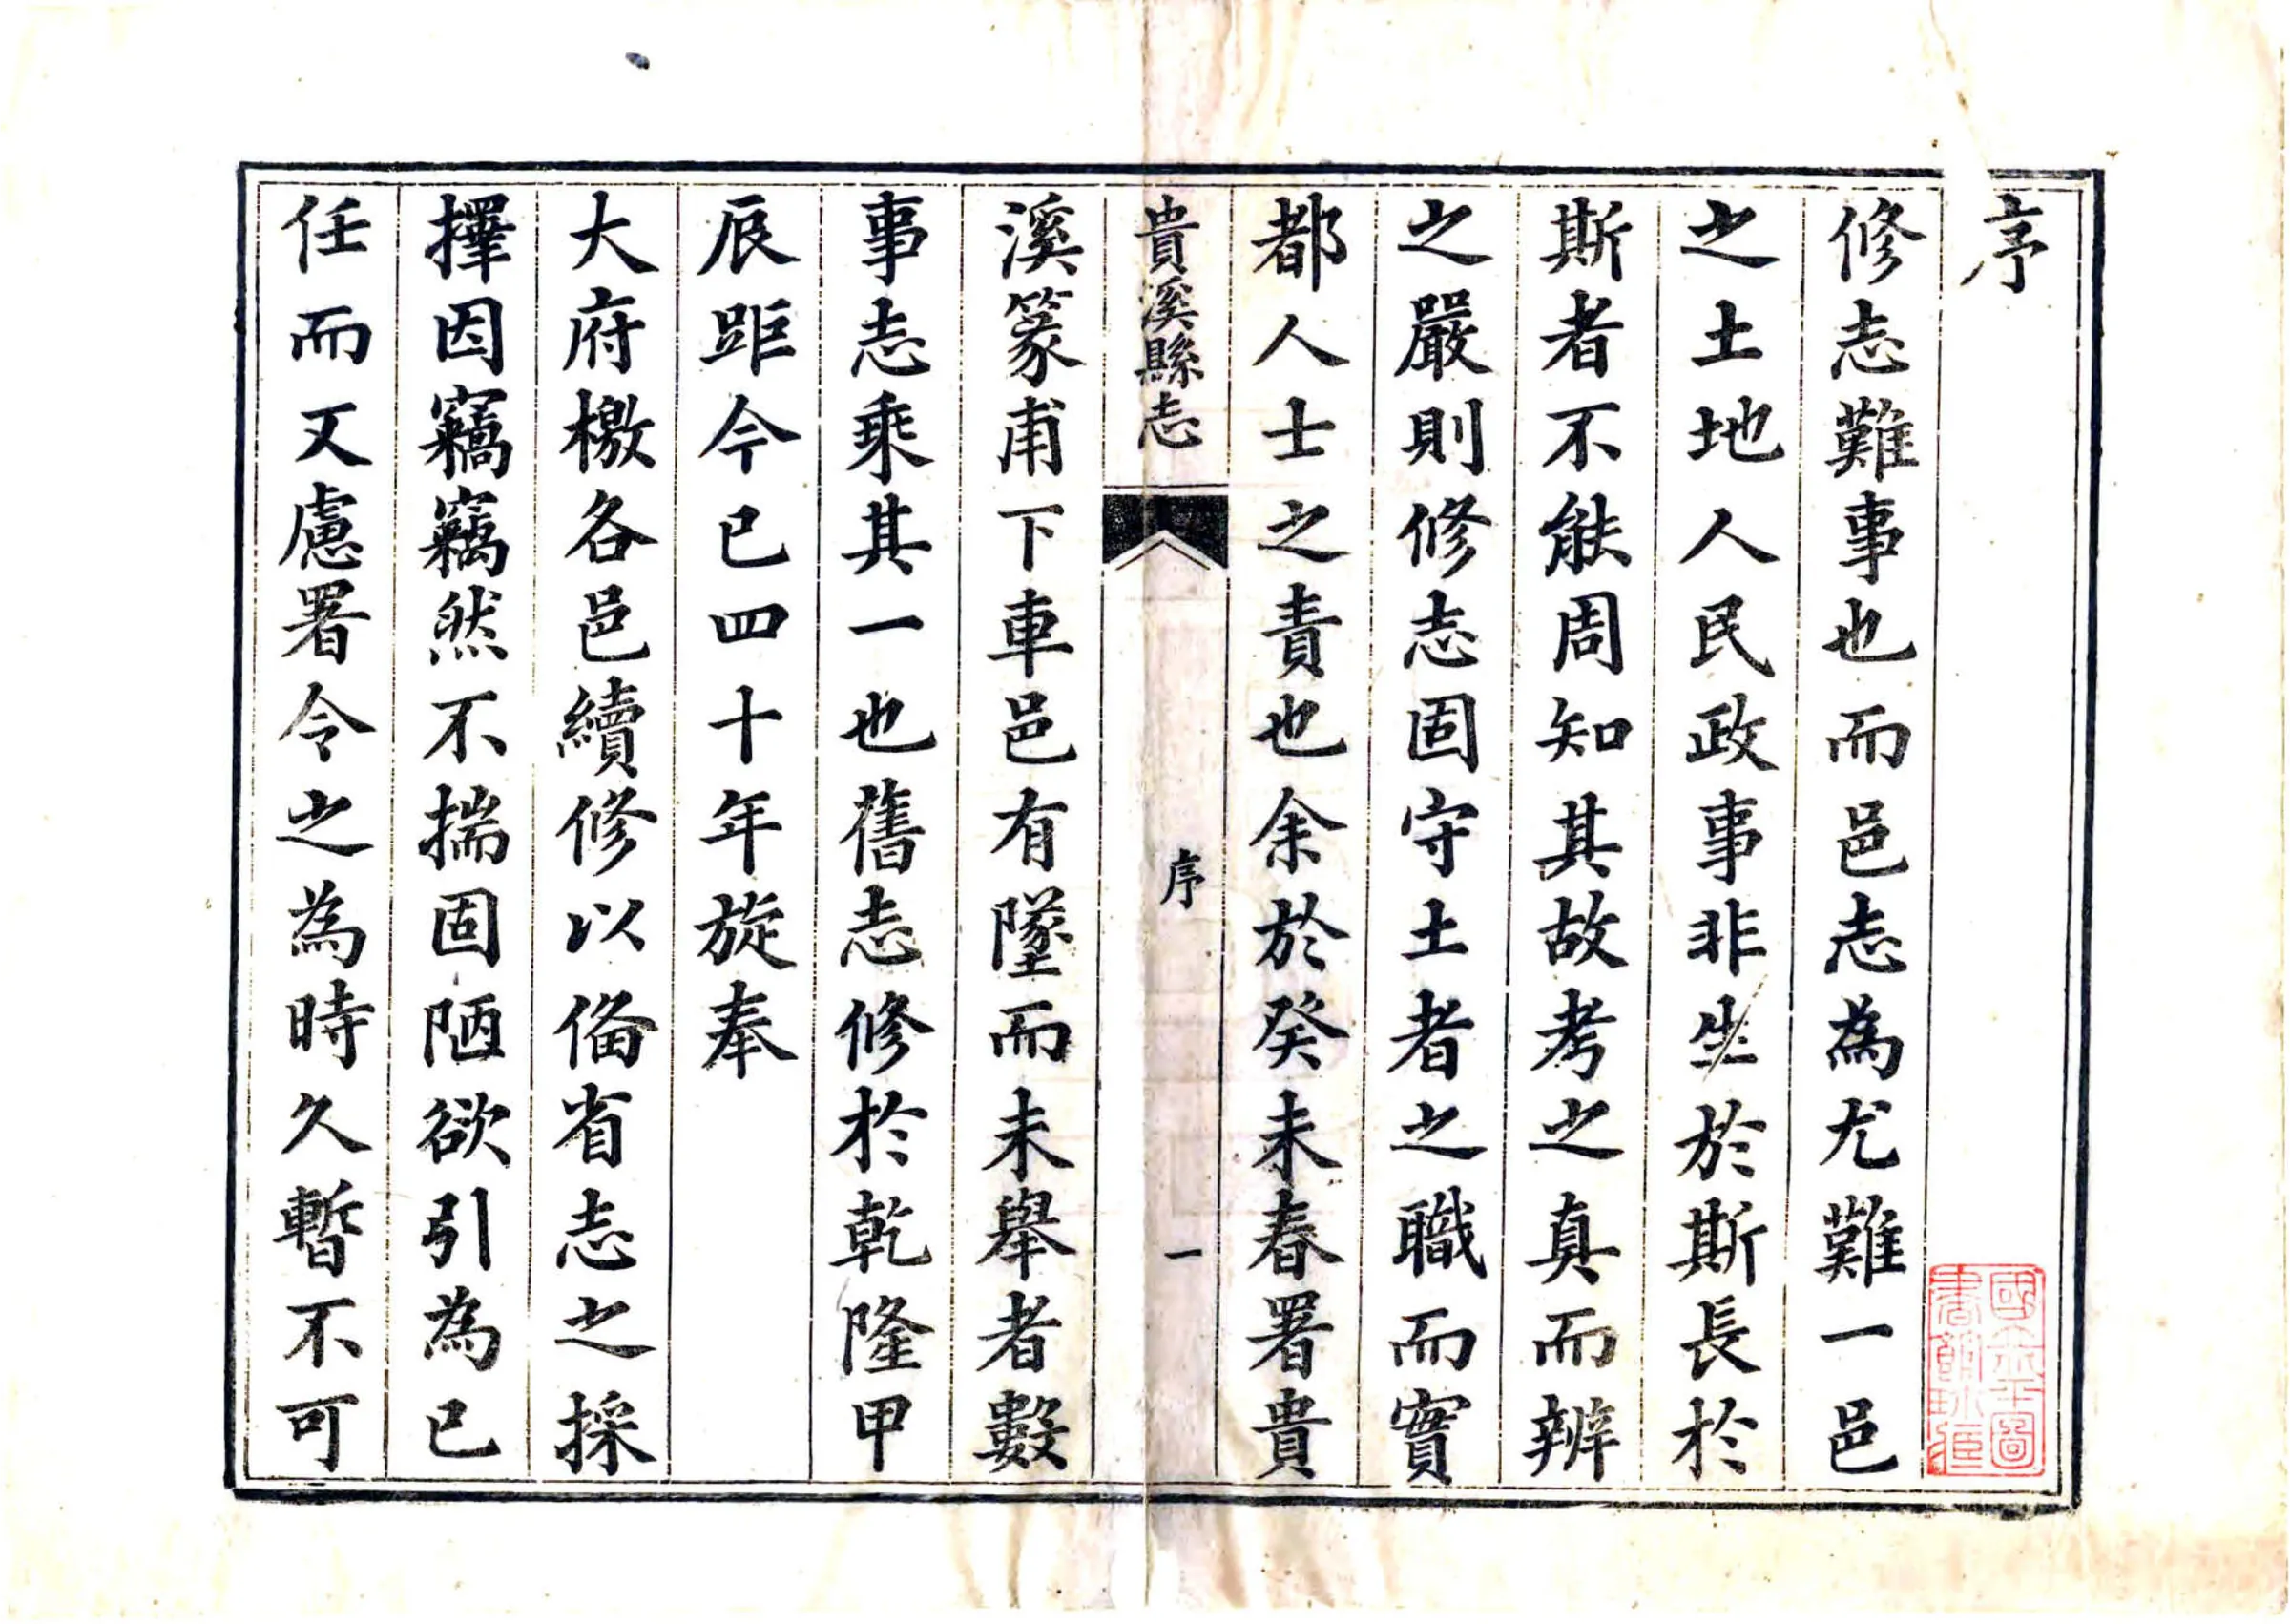 序
修志難事也而邑志為尤難一邑
之土地人民政事非生於斯長於
斯者不能周知其故考之真而辨
之嚴則修志固守土者之職而實
都人士之責也余於癸未春署貴
貴溪縣志
序
一
溪篆甫下車邑有墜而未舉者數
事志乘其一也舊志修於乾隆甲
辰距今已四十年旋奉
大府檄各邑續修以俻省志之採
擇因竊竊然不揣固陋欲引為已
任而又慮署令之為時久暫不可
國立北平圖
書館珍藏